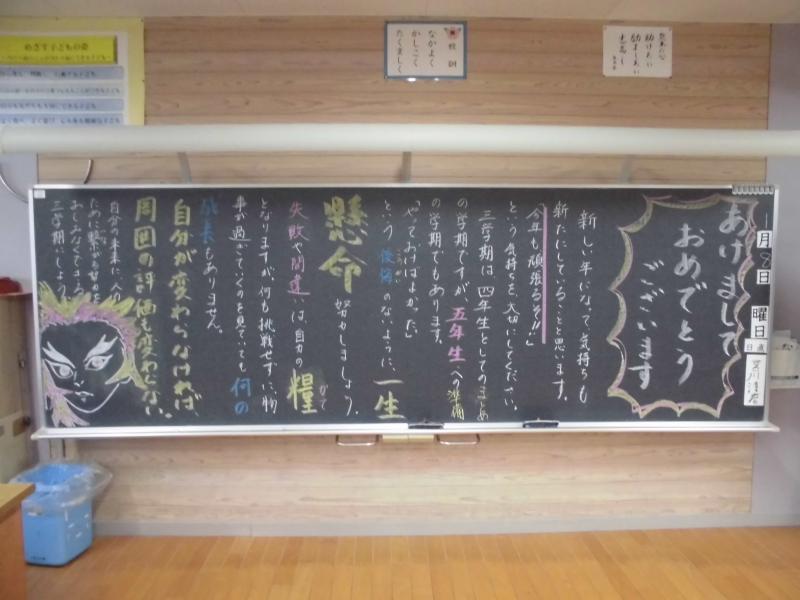 校訓
なかよく
かしこく
たくましく
助けたい
励ましたい
めざす子どもの姿
一月8日
曜日
日直
あけまして
おめでとう
ございます
新しい年になって、気持ちも
新たにしていることと思います。
「今年も頑張るぞ!!」
という気持ちを、大切にしてください。
三学期は、四年生としてのまとめ
の学期ですが、五年生への準備
の学期でもあります。
「やっておけばよかった」
という後悔のないように、一生
こうかい
懸命努力しましょう。
失敗や間違いは、自分の糧
かて
となりますが、何も挑戦せずに、物
事が過ぎていくのを見ていても何の
成長もありません。
自分が変わらなければ、
周囲の評価も変わらない。
自分の未来に、人の
ために繋がる努力を
おしみなくできる
三学期にしよう